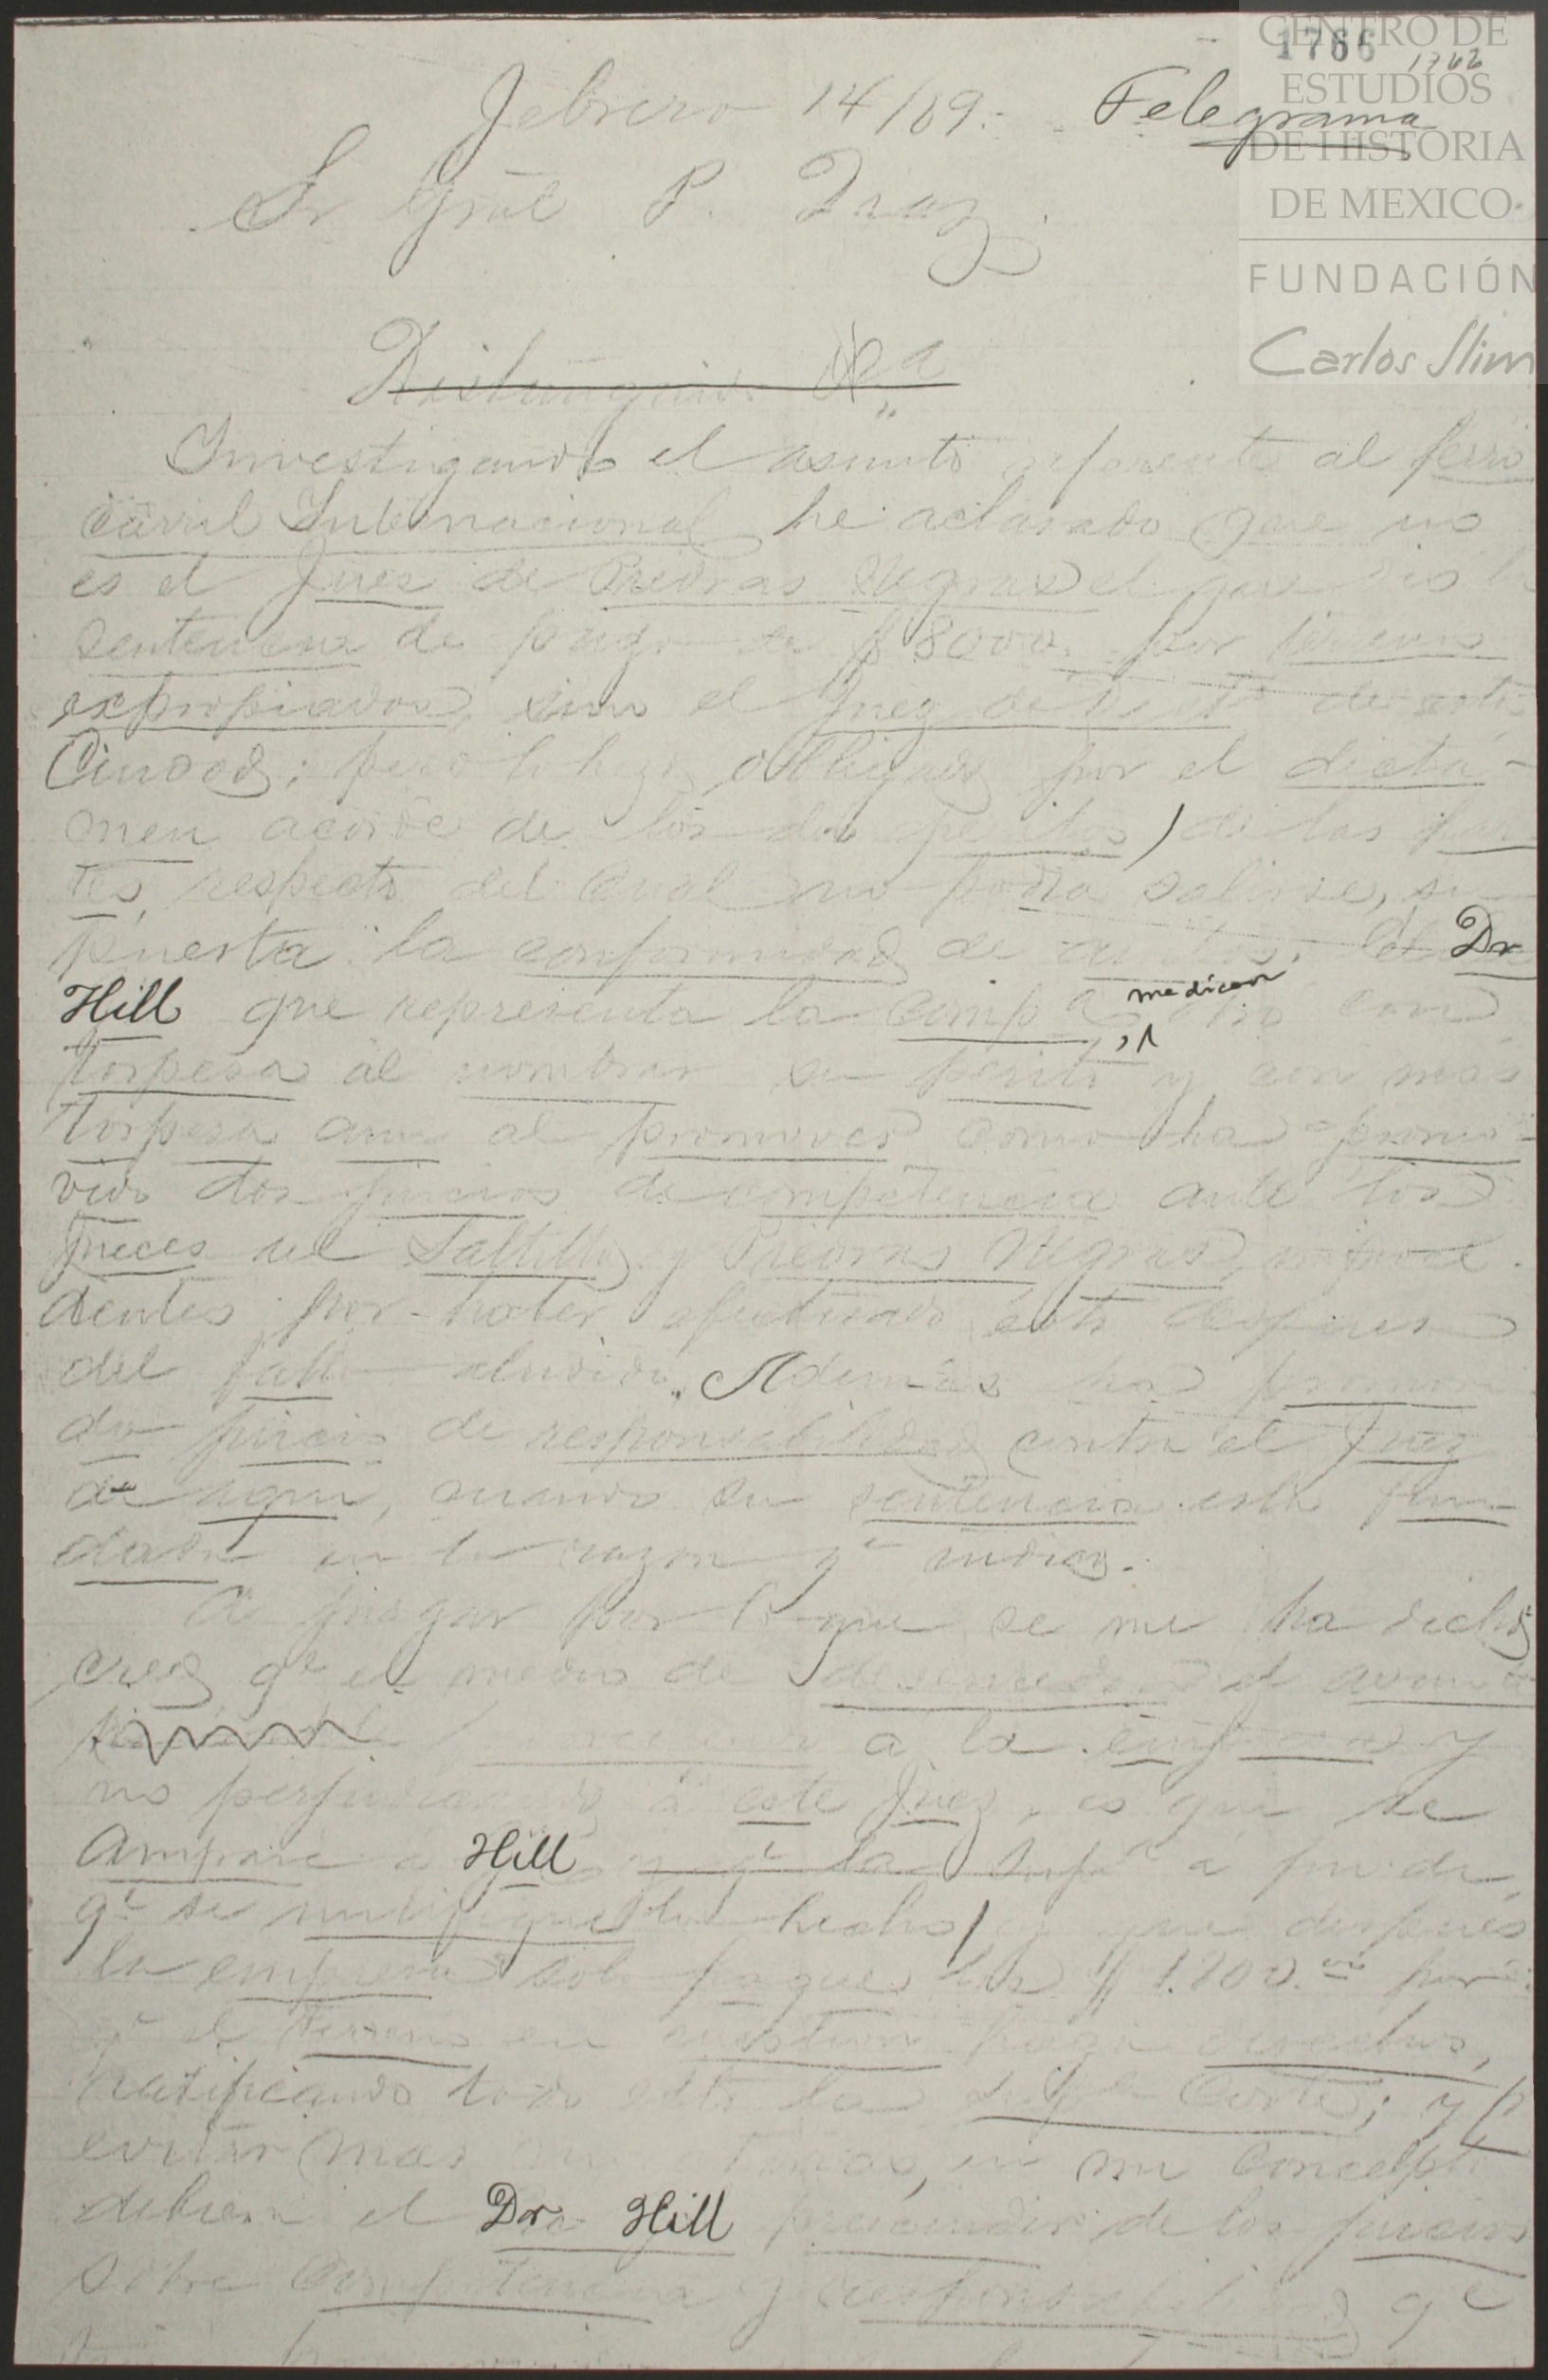 1766
1766
CENTRO DE
ESTUDIOS
DE HISTORIA
DE MEXICO
FUNDACIÓN
Carlos Slim
Febrero 14/09. Telegrama
Sr Gral P. Diaz.
Distinguido
Investigando el asunto referente al ferro
carril Internacional he aclarado que no
es el Juez de Piedras Negras el que dio la
sentencia de pago de $8000. por terrenos
expropiados, sino el Juez de de esta
Ciudad; pero lo hizo obligado por el dicta-
men acorde de los dos peritos, de las par
tes, respecto del cual no podia salirse, su
puesta la conformidad de Dr
Hill que representa la Comp.a medican con
torpesa al nombrar su perito y con mas
torpesa aun al promover como ha promo-
vido dos juicios de competencia ante los
Jueces del Saltillo y Piedras Negras, improce
dentes por haber efectuado esto despues
del fallo aludido. Además ha promovi
do juicio de responsabilidad contra el Juez
de aqui, cuando su sentencia está fun-
dada en la razon qe indico.
A juzgar por lo que se me ha dicho
creo qe el medio de desenredar el asunto
a la empresa y
no perjudicando á este Juez, es que se
ampare a Hill y qe la Supa a fin de
qe se nulifique lo hecho, y que despues
la empresa solo pague los $1.800.oo por
qe el terreno en cuestion haga derechos,
ratificando todo esto la Supa Corte; y p
evitar mas en mi concepto
debiera el Dr. Hill prescindir de los juicios
sobre Competencia y responsabilidad qe